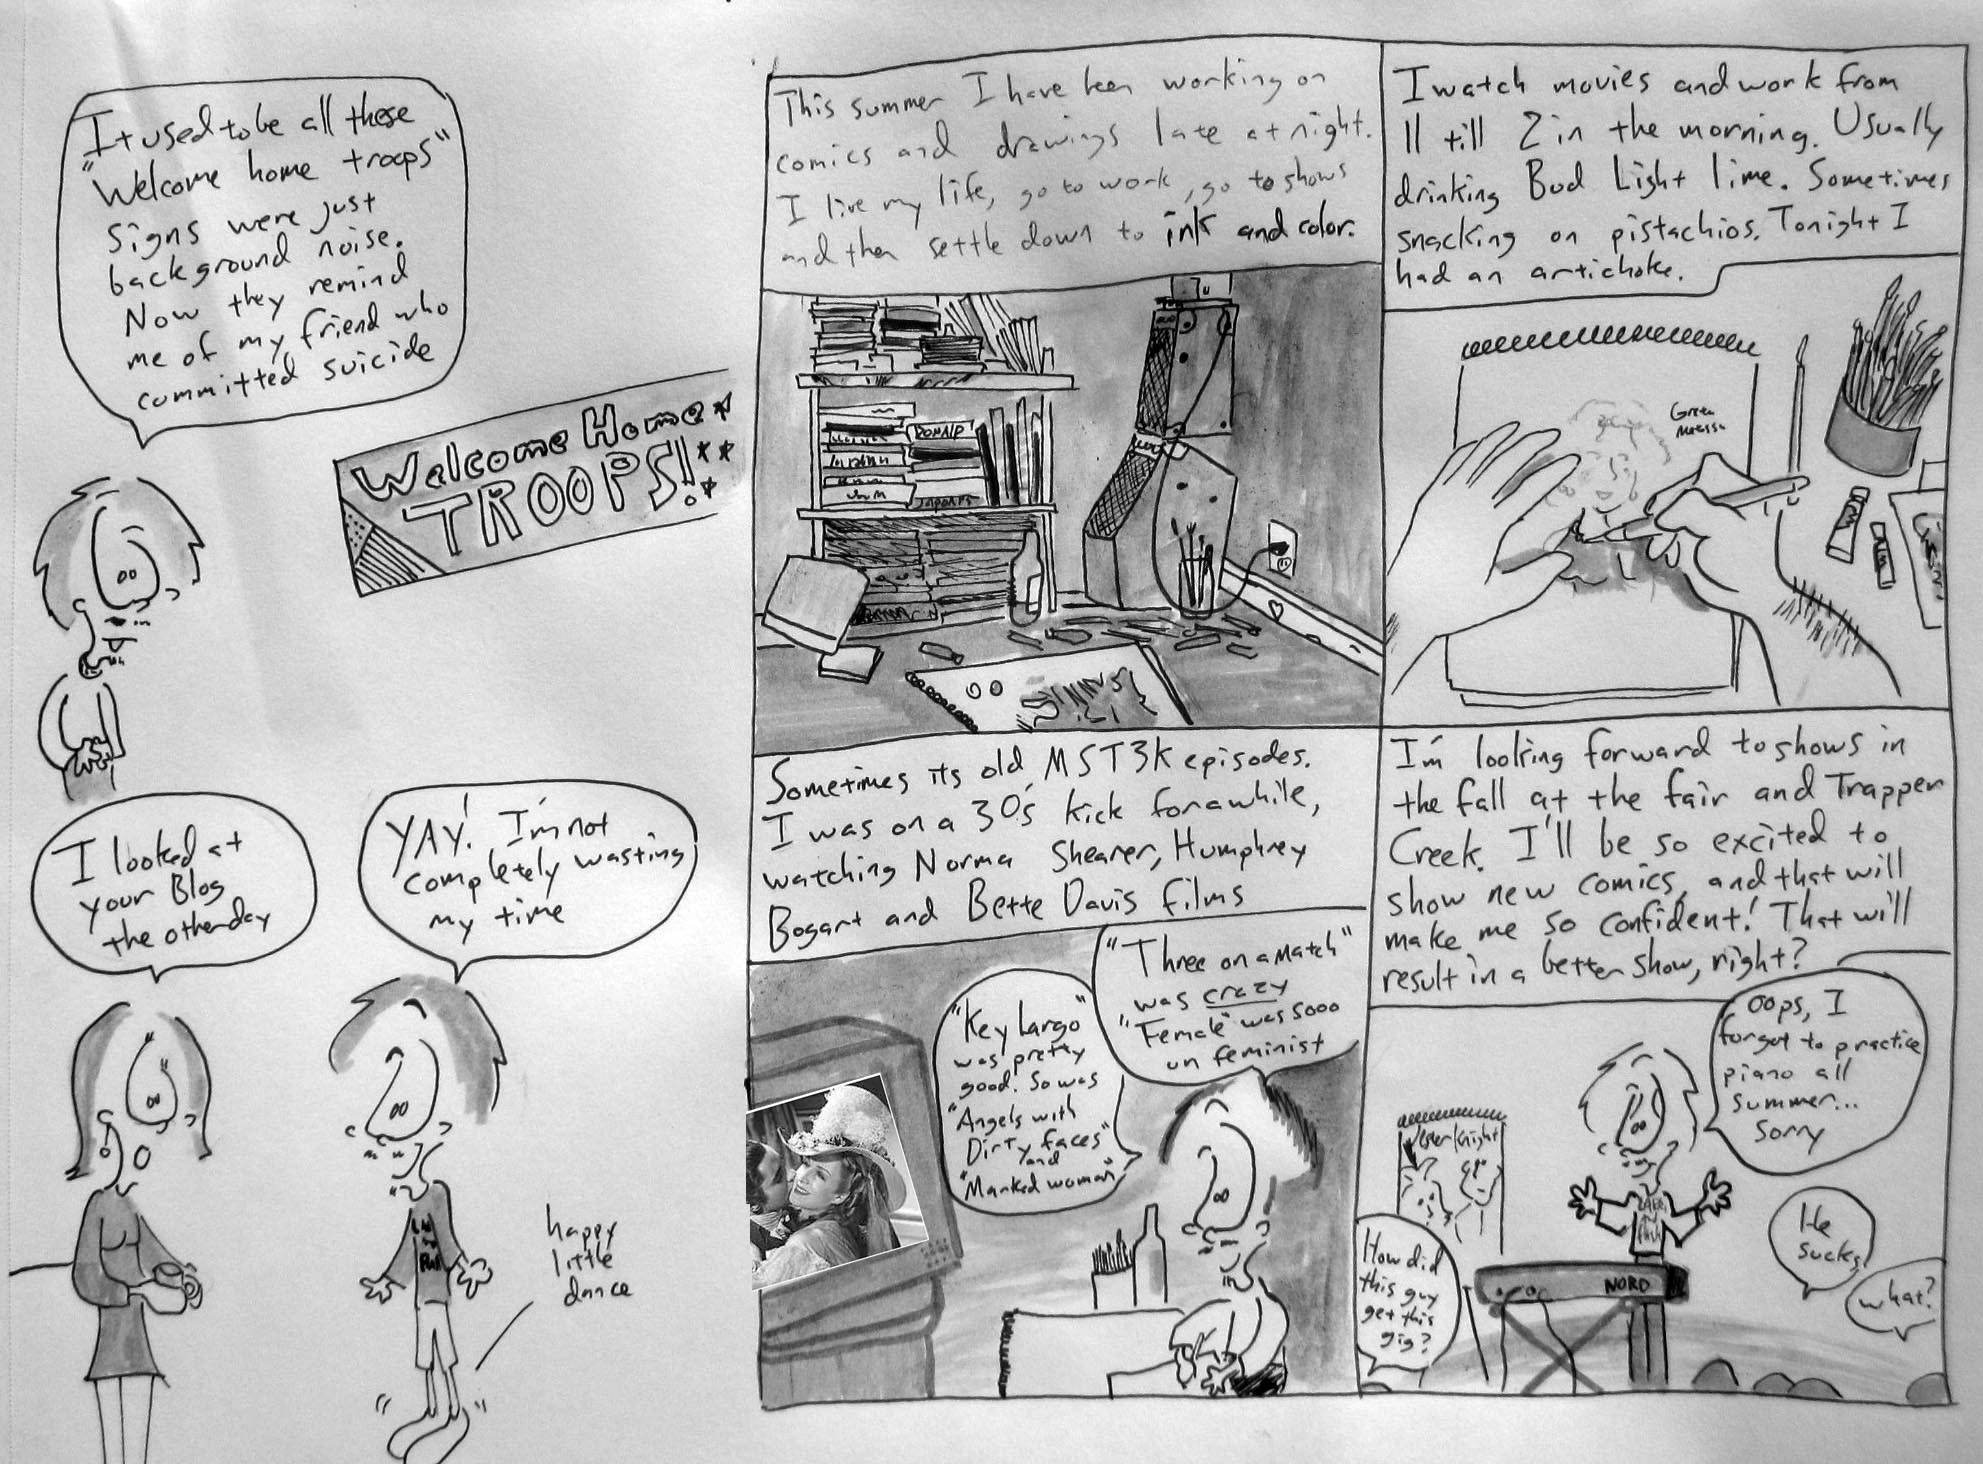 It used to be all these
"Welcome home troops"
signs were just
background noise.
Now they remind
me of my friend who
committed suicide
Welcome Home
TROOPS!
I looked at
your Blog
the other day
YAY! I'm not
completely wasting
my time
happy
little
dance
This summer I have been working on
comics and drawings late at night.
I live my life, go to work, go to shows
and then settle down to ink and color.
I watch movies and work from
11 till 2 in the morning. Usually
drinking Bud Light lime. Sometimes
snacking on pistachios. Tonight I
had an artichoke.
Sometimes its old MST3K episodes.
I was on a 30's kick for awhile,
watching Norma Shearer, Humphrey
Bogart and Bette Davis films
"Three on a Match"
was crazy
"Female" was sooo
un feminist
"Key Largo"
was pretty
good. So was
"Angels with
Dirty faces"
and
"Marked woman"
I'm looking forward to shows in
the fall at the fair and Trapper
Creek. I'll be so excited to
show new comics, and that will
make me so confident! That will
result in a better show, right?
Oops, I
forgot to practice
piano all
summer...
sorry
He
sucks
what?
How did
this guy
get this
gig?
NORD